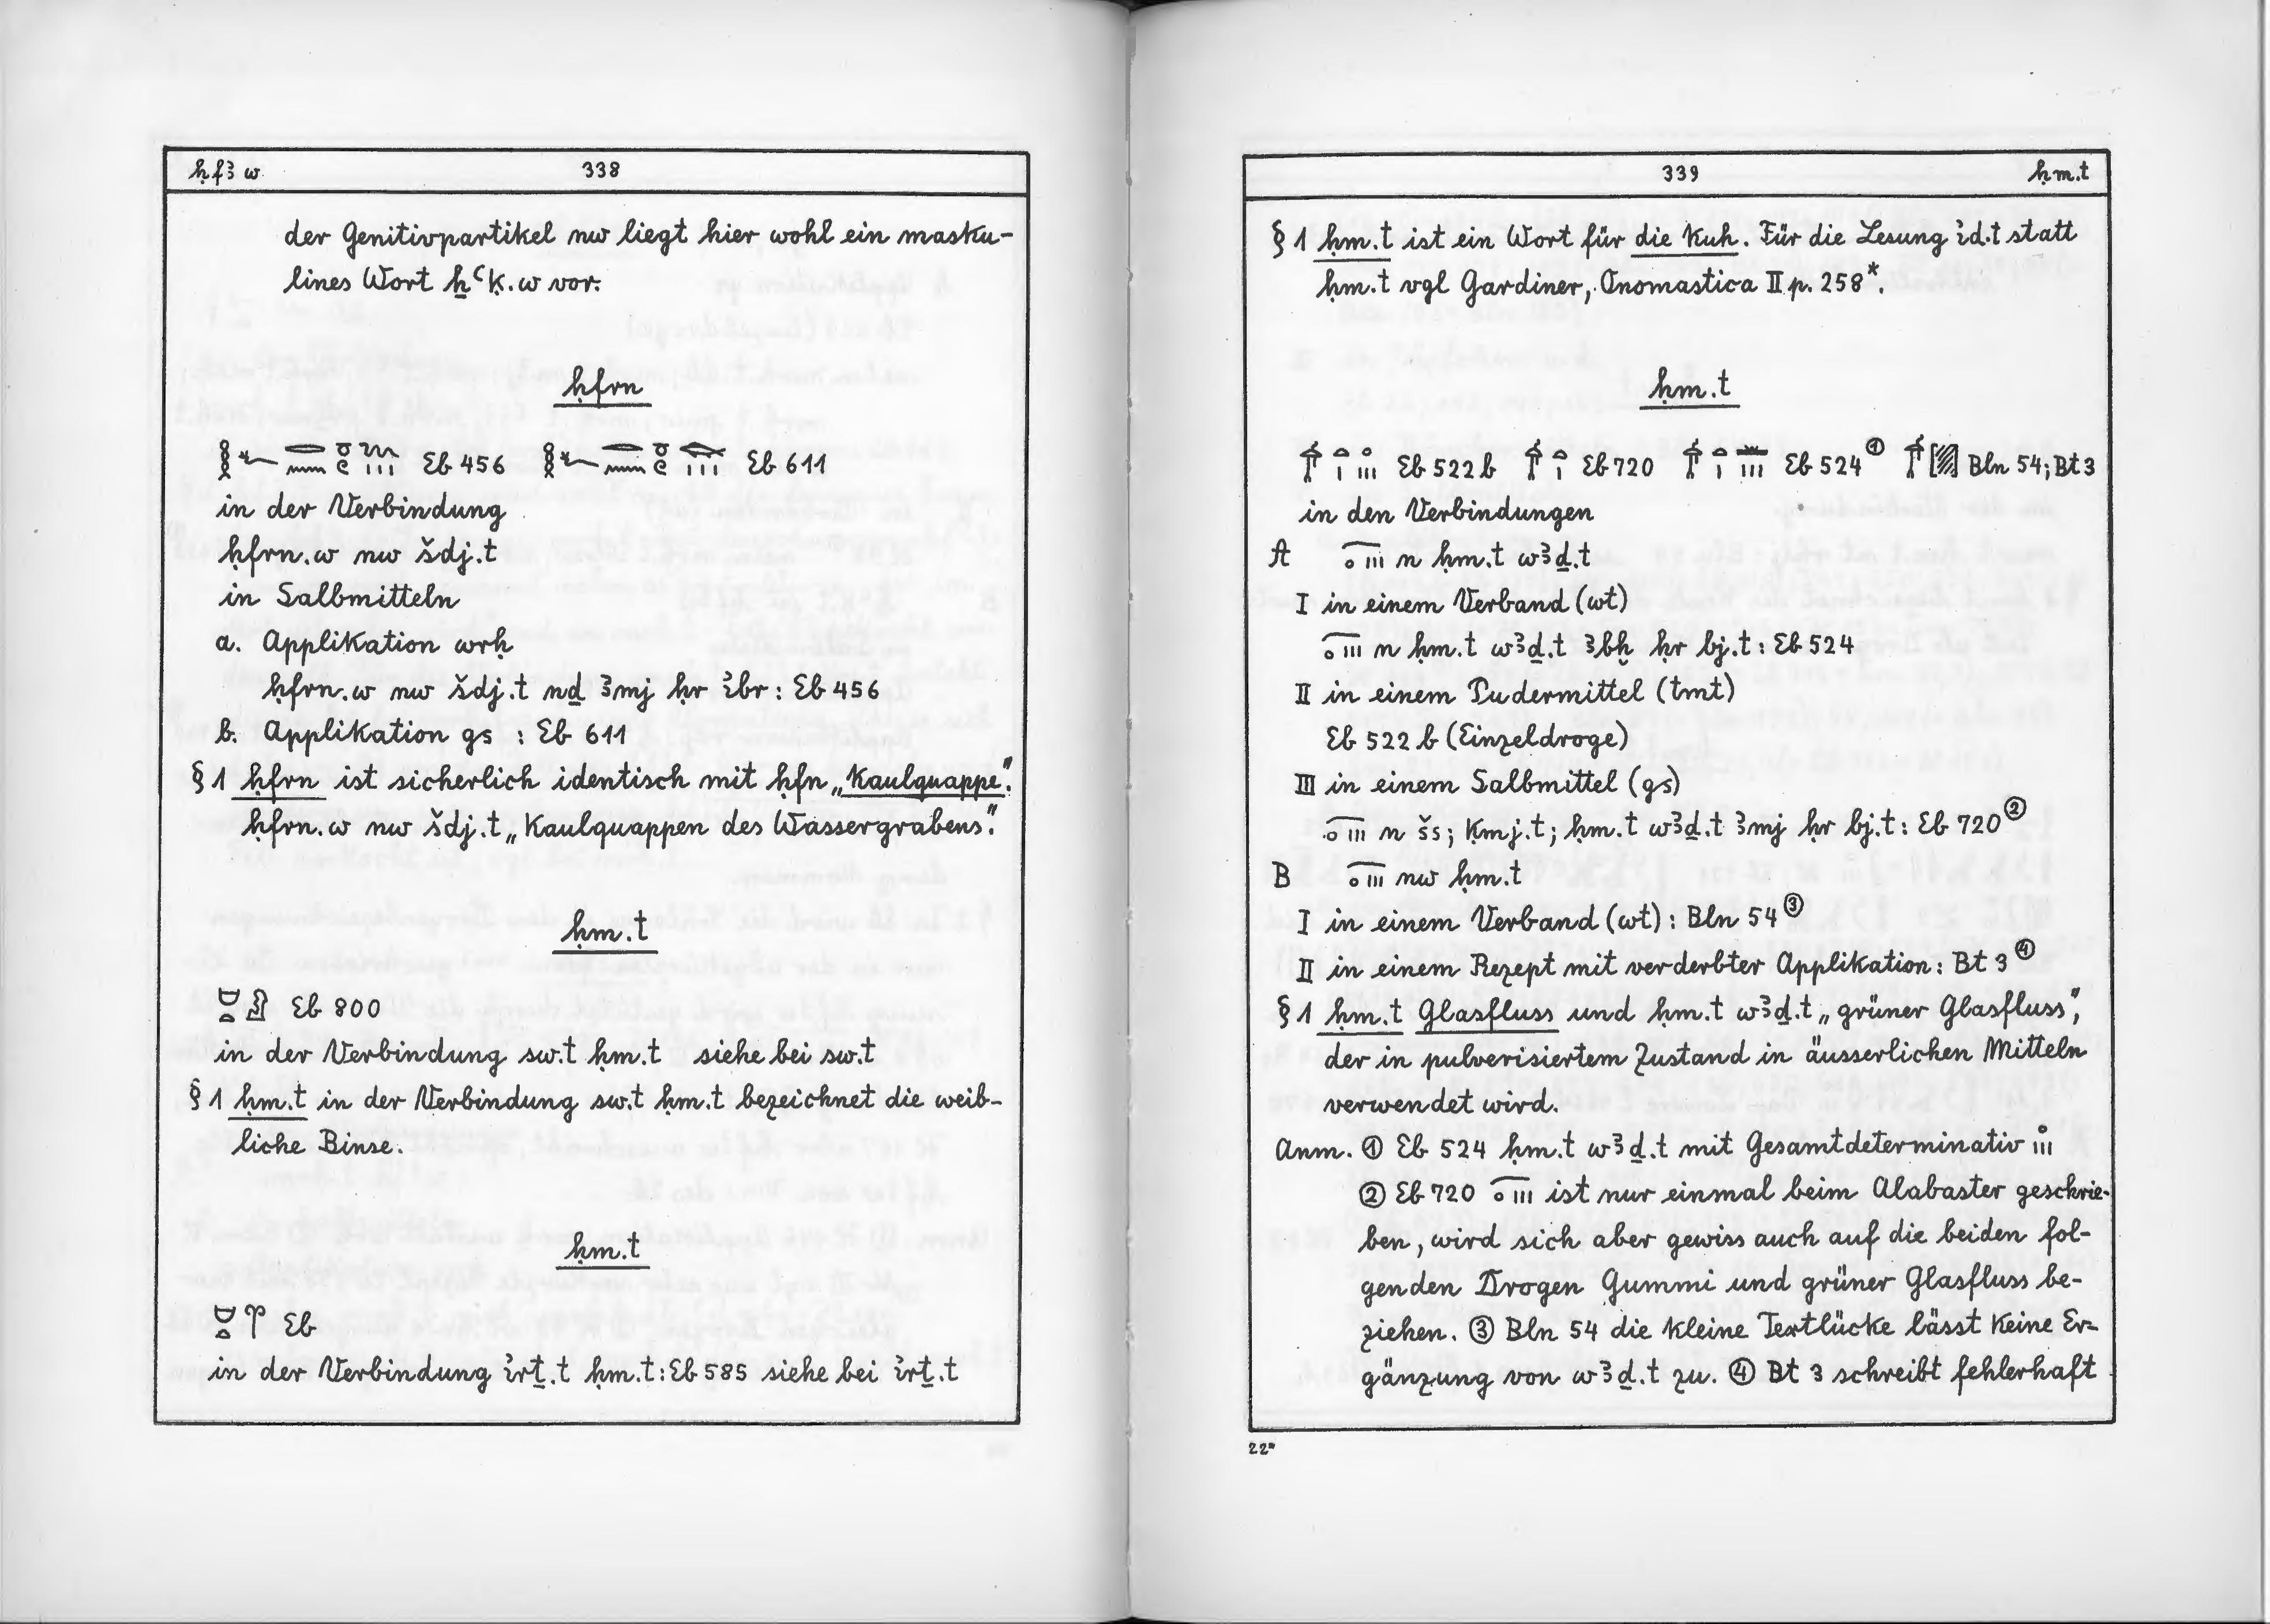 ḥfꜣw 338
der Genitivpartikel nw liegt hier wohl ein masku-
lines Wort ẖꜥḳ.w vor.
ḥfrn
Eb 456 Eb 611
in der Verbindung
ḥfrn.w nw šdj.t
in Salbmitteln
a. Applikation wrḥ
ḥfrn.w nw šdj.t nḏ ꜣmj ḥr ꞽbr : Eb 456
b. Applikation gs : Eb 611
§ 1 ḥfrn ist sicherlich identisch mit ḥfn „Kaulquappe".
ḥfrn.w nw šdj.t „Kaulquappen des Wassergrabens".
ḥm.t
Eb 800
in der Verbindung sw.t ḥm.t siehe bei sw.t
§ 1 ḥm.t in der Verbindung sw.t ḥm.t bezeichnet die weib-
liche Binse.
ḥm.t
Eb
in der Verbindung ꞽrṯ.t ḥm.t : Eb 585 siehe bei ꞽrṯ.t
339 ḥm.t
§ 1 ḥm.t ist ein Wort für die Kuh. Für die Lesung ꞽd.t statt
ḥm.t vgl Gardiner, Onomastica II p. 258*.
ḥm.t
Eb 522 b Eb 720 Eb 524 ① Bln 54; Bt 3
in den Verbindungen
A n ḥm.t wꜣḏ.t
I in einem Verband (wt)
n ḥm.t wꜣḏ.t ꜣbḫ ḥr bj.t : Eb 524
II in einem Pudermittel (tmt)
Eb 522 b (Einzeldroge)
III in einem Salbmittel (gs)
n šs; ḳmj.t; ḥm.t wꜣḏ.t ꜣmj ḥr bj.t : Eb 720 ②
B nw ḥm.t
I in einem Verband (wt) : Bln 54 ③
II in einem Rezept mit verderbter Applikation : Bt 3 ④
§ 1 ḥm.t Glasfluss und ḥm.t wꜣḏ.t „grüner Glasfluss",
der in pulverisiertem Zustand in äusserlichen Mitteln
verwendet wird.
Anm. ① Eb 524 ḥm.t wꜣḏ.t mit Gesamtdeterminativ
② Eb 720 ist nur einmal beim Alabaster geschrie-
ben, wird sich aber gewiss auch auf die beiden fol-
genden Drogen Gummi und grüner Glasfluss be-
ziehen. ③ Bln 54 die kleine Textlücke lässt keine Er-
gänzung von wꜣḏ.t zu. ④ Bt 3 schreibt fehlerhaft
22*